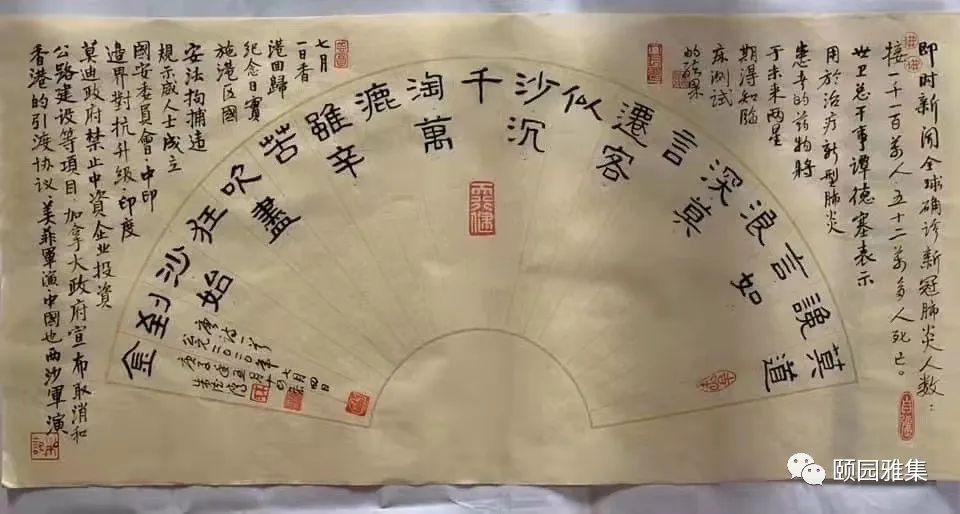 即时新闻全球确诊新冠肺炎人数：
接一千一百萬人，五十二萬多人死亡。
世卫总干事谭德塞表示
用於治疗新型肺炎
患者的药物将
于未来两星
期得知临
床测试
的结果
莫道
讒
言如
浪
深莫
言
遷客
似
沙沉
千
淘萬
漉
雖辛
苦
吹盡
狂
沙始
到
金
唐诗一首
公元二〇二〇年七月四日
七月
一日香
港回歸
纪念日實
施港区國
安法拘捕違
規示威人士成立
國安委員會·中印
邊界對抗升級·印度
莫迪政府禁止中資企业投資
公路建设等項目·加拿大政府宣布取消和
香港的引渡协议·美菲軍演·中國也西沙軍演
颐园雅集